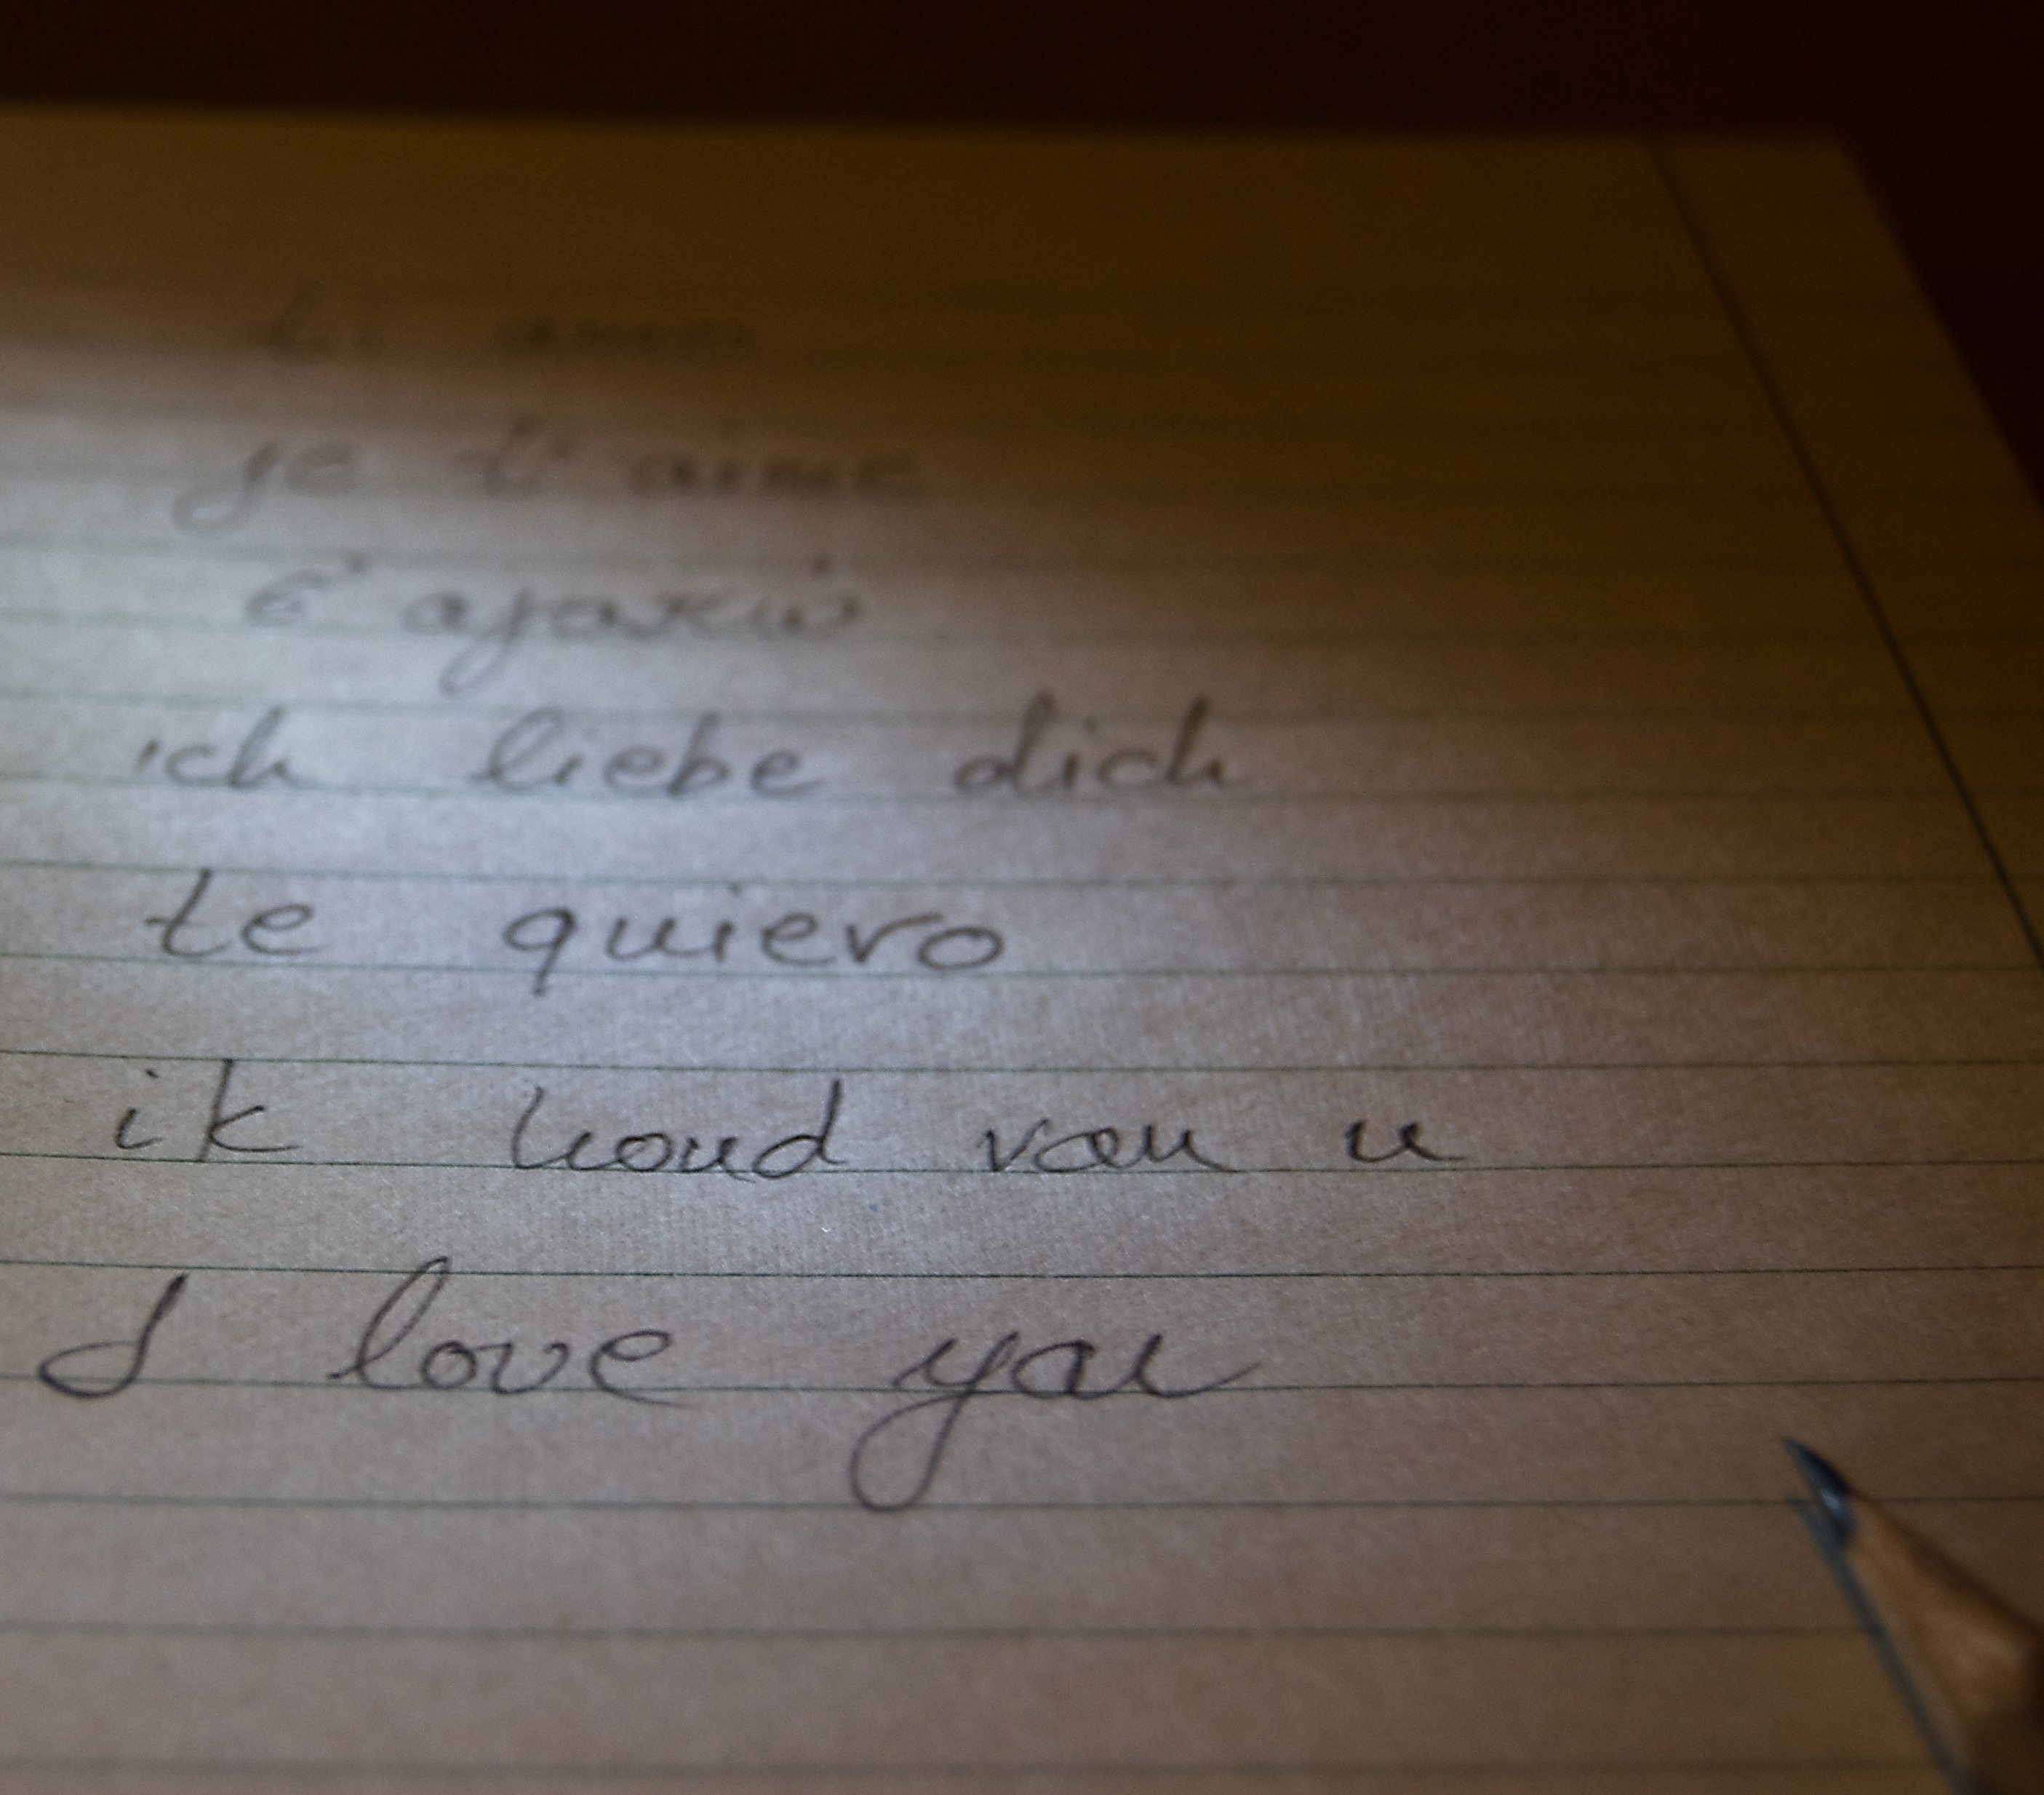 ti amo
je t'aime
σ' αγαπώ
ich liebe dich
te quiero
ik houd van u
I love you